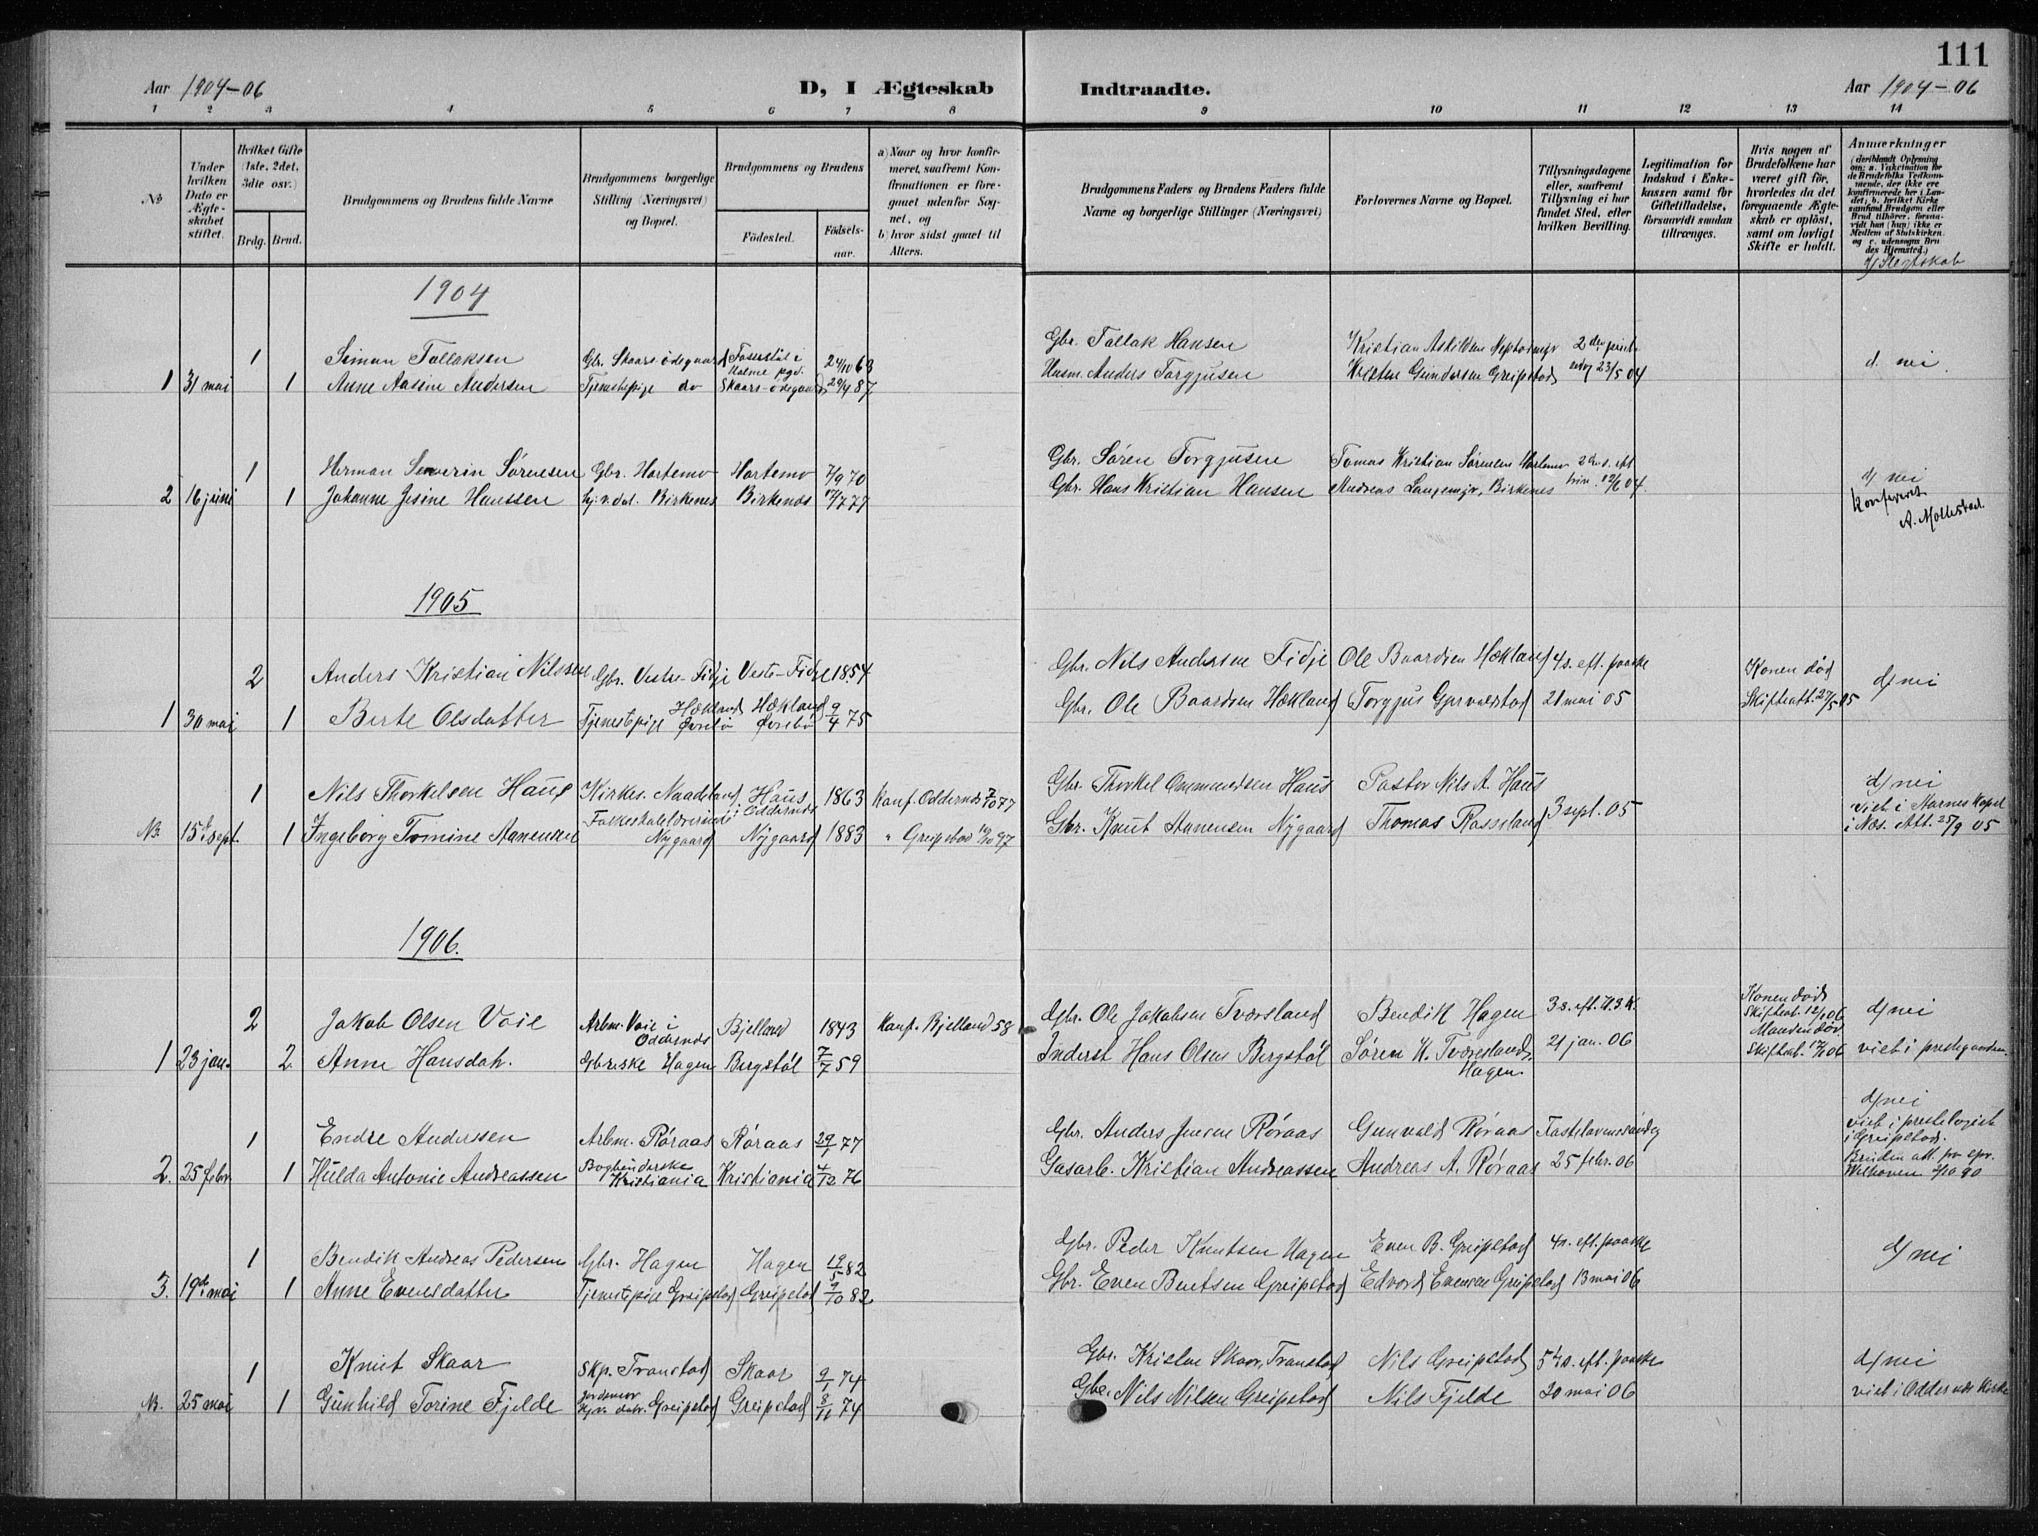 111
Aar 1904-06
D, I Ægteskab Indtraadte.
Aar 1904-06
1 2 3 4 5 6 7 8 9 10 11 12 13 14
No
Under hvilken Dato er Ægteskabet stiftet.
Hvilket Gifte (1ste, 2det, 3die osv.)
Brdg. Brud.
Brudgommens og Brudens fulde Navne
Brudgommens borgerlige Stilling (Næringsvei) og Bopæl.
Brudgommens og Brudens
Födested. Födsels-aar.
a) Naar og hvor konfirmeret, saafremt Konfirmationen er foregaaet udenfor Sognet, og
b) hvor sidst gaaet til Alters.
Brudgommens Faders og Brudens Faders fulde Navne og borgerlige Stillinger (Næringsvei)
Forlovernes Navne og Bopæl.
Tillysningsdagene eller, saafremt Tillysning ei har fundet Sted, efter hvilken Bevilling.
Legitimation for Indskud i Enkekassen samt for Giftetilladelse, forsaavidt saadan tiltrænges.
Hvis nogen af Brudefolkene har været gift før, hvorledes da det foregaaende Ægteskab er opløst, samt om lovligt Skifte er holdt.
Anmerkninger
(deriblandt Oplysning om: a. Vakcination for de Brudefolks Vedkommende, der ikke ere konfirmerede her i Landet; b. hvilket Kirkesamfund Brudgom eller Brud tilhører, forsaavidt han (hun) ikke er Medlem af Statskirken, og c. udensogns Brudes Hjemsted.)
d) Slegtskab
1904
1 Simon Tallaksen Gbr. Skaars-ødegaard Faserstøl i Halme pgd. 24/10 63 Gbr. Tallak Hansen Kristian Askildsen 2den pinse d. nei
1 31 mai 1 Anne Aasine Andersen Tjenestepige do Skaars-ødegaard 29/4 87 Husm. Anders Torgjusen Kristen Gundersen Greipstad 23/5 04
1 Herman Severin Sørensen Gbr. Hortemo Hortemo 7/9 70 Gbr. Søren Torgjusen Tomas Kristian Sørensen Hortemo 2den s. eft. d) nei
2 16 juni 1 Johanne Jesine Hanssen hj.v.dat. Birkenes Birkenes 17/7 77 Gbr. Hans Kristian Hansen Andreas Langemyr, Birkenes trin. 12/6 04.
Konfereret A. Mollestad.
1905
2 Anders Kristian Nilssen Gbr. Vestre-Fidje Vestr-Fidje 1854 Gbr. Nils Andersen Fidje Ole Baardsen Hækland 4s. eft. paaske Konen død d) nei
1 30 mai 1 Birte Olsdatter Tjenestepige Hækland Øvrebø Hækland Øvrebø 9/4 75 Gbr. Ole Baardsen Hækland Torgjus 21 mai 05 Skifteatt. 27/5 05
1 Nils Thorkelsen Haus Kirkes. Naadeland Haus i Oddernes 1863 Konf. Oddernes 7/10 77 Gbr. Thorkel Ommundsen Haus Pastor Nils A. Haus d) nei
N. 15de sept. 1 Ingeborg Tomine Aanensen Folkeskolelærerinde Nygaard Nygaard 1883 " Greipstad 10/10 97 Gbr. Knut Aanensen Nygaard Thomas Rosseland 3 sept. 05 viet i Aarnes Kapel i Næs. Att. 25/9 05
1906.
2 Jakob Olsen Voie Arbm. Voie i Oddernes Bjelland 1843 Konf. Bjelland 58 Gbr. Ole Jakobsen Tværsland Bendik Hagen 3 s. eft. H.3.K. Konen død Skifteatt. 12/1 06 d) nei
1 23 jan. 2. Anne Hansdatr. Gbrerske Hagen Bergstøl 7/7 59 Inderst Hans Olsen Bergstøl Søren K. Tværsland, Hagen. 21 jan. 06 Manden død. Skifteatt. 12/1 06 viet i prestegaarden.
1 Endre Anderssen Arbm. Røraas Røraas 29/1 77 Gbr. Anders Jensen Røraas Gunvald Røraas Fastelavenssøndag d) nei viet i prestelogiet i Greipstad.
2. 25 febr. 1 Hulda Antonie Andreassen Bogbinderske Kristiania Kristiania 4/12 76 Gasarb. Kristian Andreassen Andreas A. Røraas 25 febr. 06 Bruden att. fra spr. Welhaven 4/10 90
1 Bendik Andreas Pedersen Gbr. Hagen Hagen 19/5 82 Gbr. Peder Knutsen Hagen Even B. Greipstad 4s. eft. paaske d) nei
3. 19de mai 1 Anne Evensdatter Tjenestepige Greipstad Greipstad 9/10 82 Gbr. Even Bentsen Greipstad Edvard Evensen Greipstad 13 mai 06
1 Knut Skaar Skp. Transtad Skaar 9/1 74 Gbr. Kristen Skaar, Transtad Nils Greipstad 5te s. eft. paaske d) nei
N. 25 mai 1 Gunhild Torine Fjelde Jordemor Greipstad Greipstad 8/11 74 Gbr. Nils Nilsen Greipstad Nils Fjelde 20 mai 06 viet i Oddernes Kirke